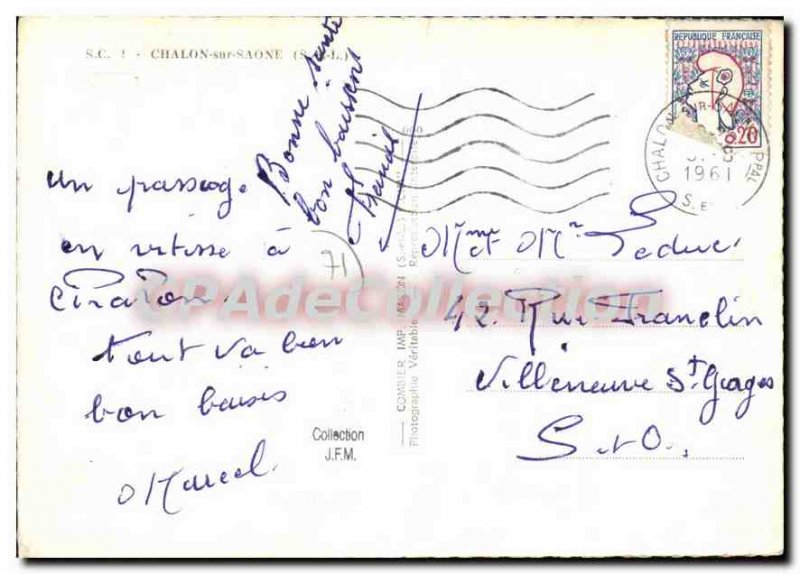 S.C. 1 - CHALON-sur-SAONE (S.-&-L.)
Bonne santé
bon baisers
un passage
en vitesse à
Chalon.
tout va bien
bon baisés
Marcel
71
Collection
J.F.M.
COMBIER IMP. MACON (S.-et-L.)
Photographie Véritable - Reproduction interdite
REPUBLIQUE FRANÇAISE
0,20
CHALON
1961
PPAL
Mme et Mr Leduc
42. Rue Franclin
Villeneuve St Georges
S. et O.
CPAdeCollection